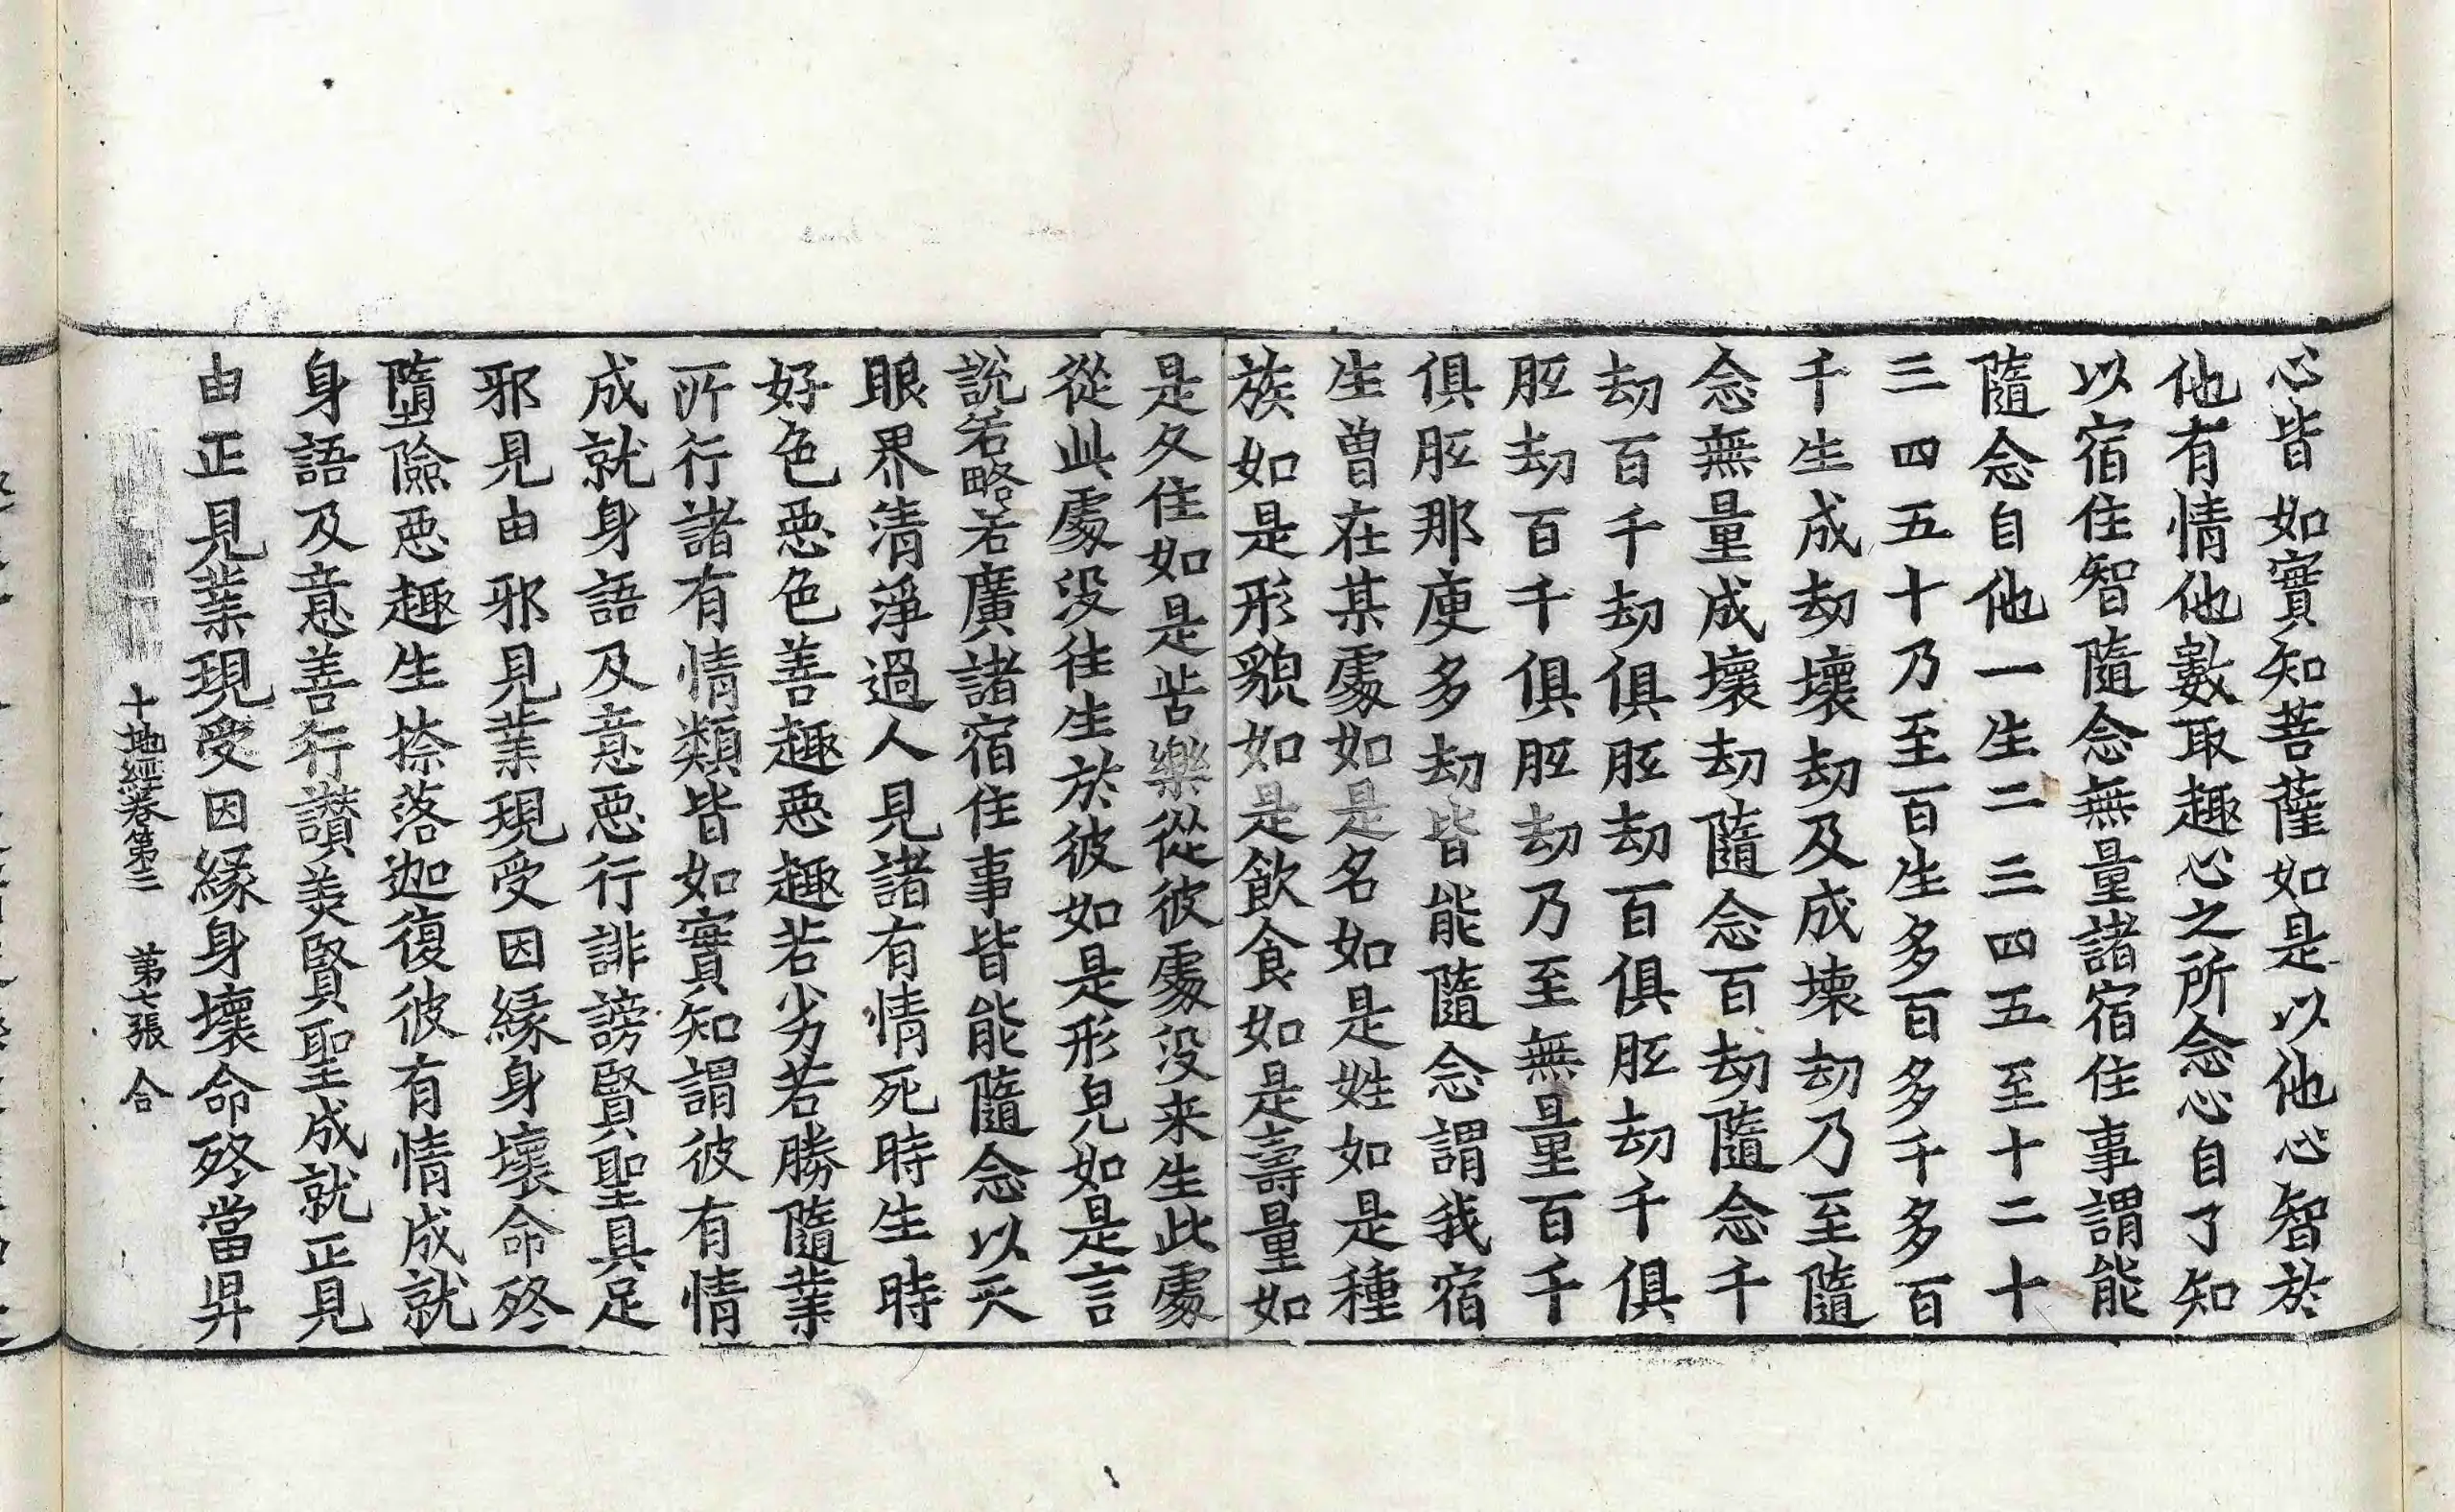 心皆如實知菩薩如是以他心智於
他有情他數取趣心之所念心自了知
以宿住智隨念無量諸宿住事謂能
隨念自他一生二三四五至十二十
三四五十乃至百生多百多千多百
千生成劫壞劫及成壊劫乃至隨
念無量成壞劫隨念百劫隨念千
劫百千劫俱胝劫百俱胝劫千俱
胝劫百千俱胝劫乃至無量百千
俱胝那庾多劫皆能隨念謂我宿
生曽在某處如是名如是姓如是種
族如是形貌如是飲食如是壽量如
是久住如是苦樂從彼處没来生此處
從此處没往生於彼如是形皃如是言
說若略若廣諸宿住事皆能隨念以天
眼界清淨過人見諸有情死時生時
好色惡色善趣惡趣若劣若勝隨業
所行諸有情類皆如實知謂彼有情
成就身語及意惡行誹謗賢聖具足
邪見由邪見業現受因緣身壞命終
墮險惡趣生捺落迦復彼有情成就
身語及意善行讃美賢聖成就正見
由正見業現受因緣身壞命終當昇
十地經卷第三 第七張 合